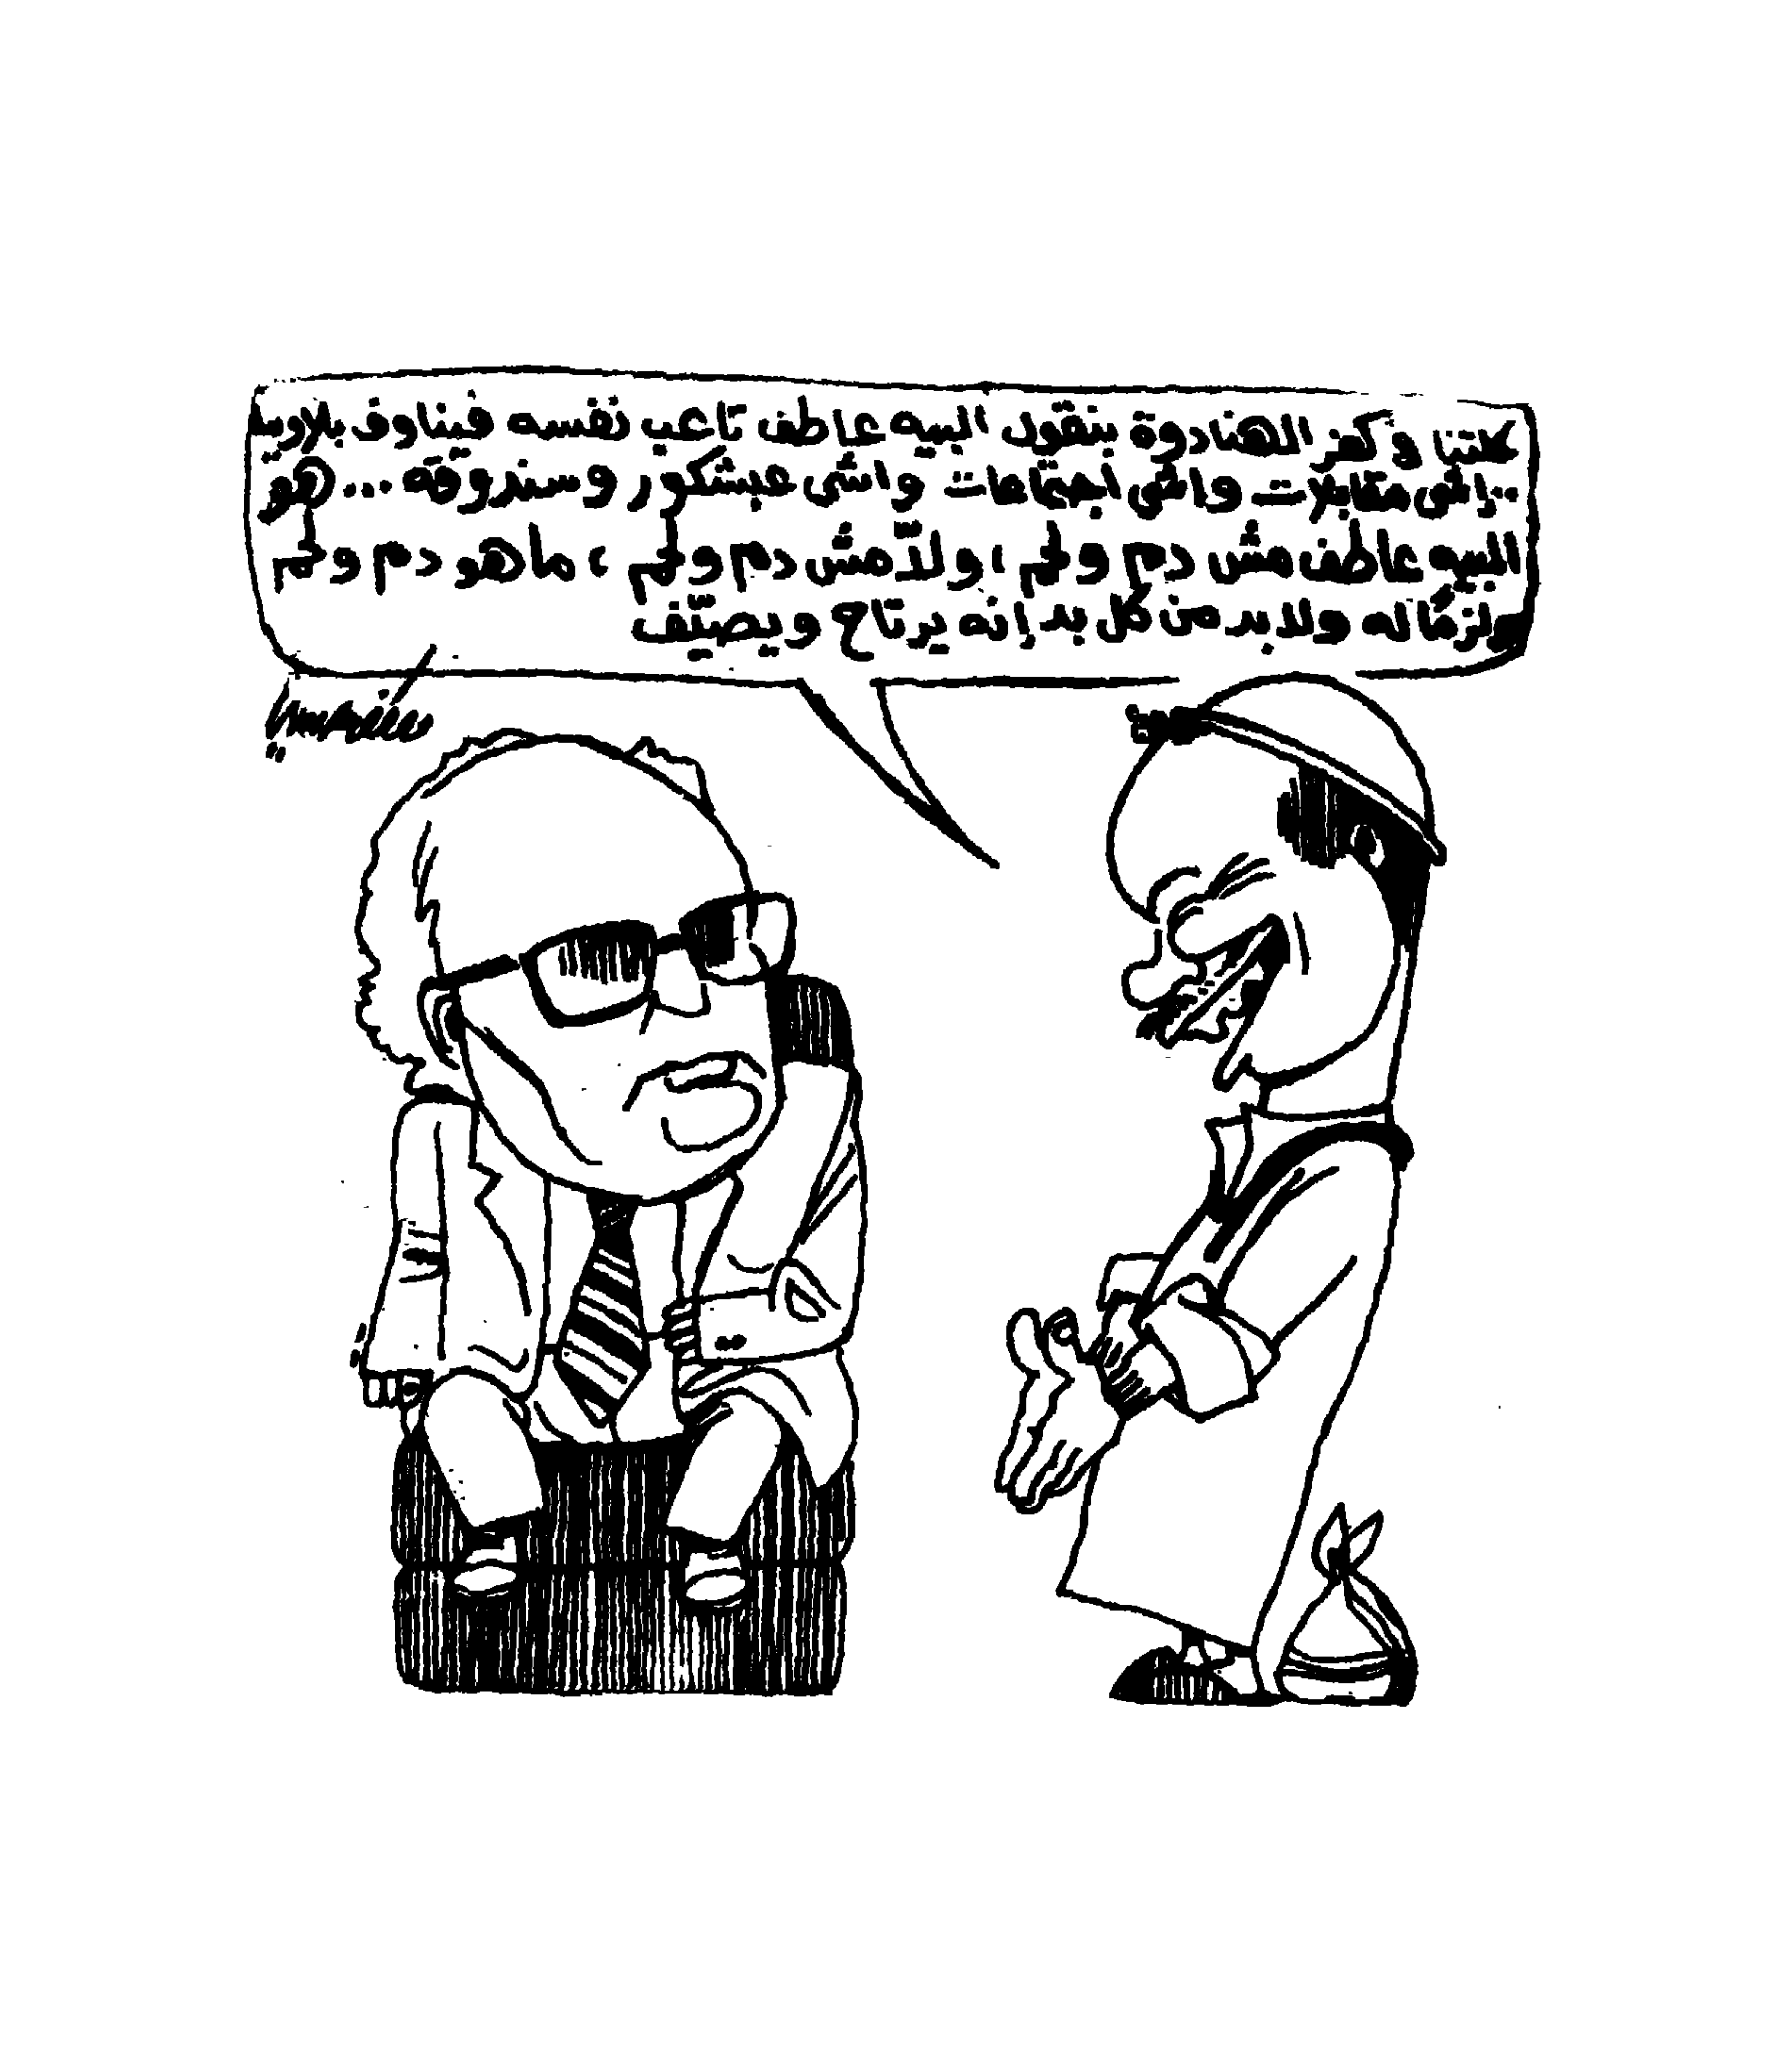 علتنا وكفر الهنادوة بنقول البيه عاطف تاعب نفسه فيناوف بلاوينا
.. اشى مقابلات واشى اجتماعات واشى عبشكور وسندوقه ... هو
البيه عاطف مش دم ولحم ، ولاّ مش دم ولحم ، ما هو دم ولحم
ولزمًا له ولابد من كل بد إنه يرتاح ويصيّف